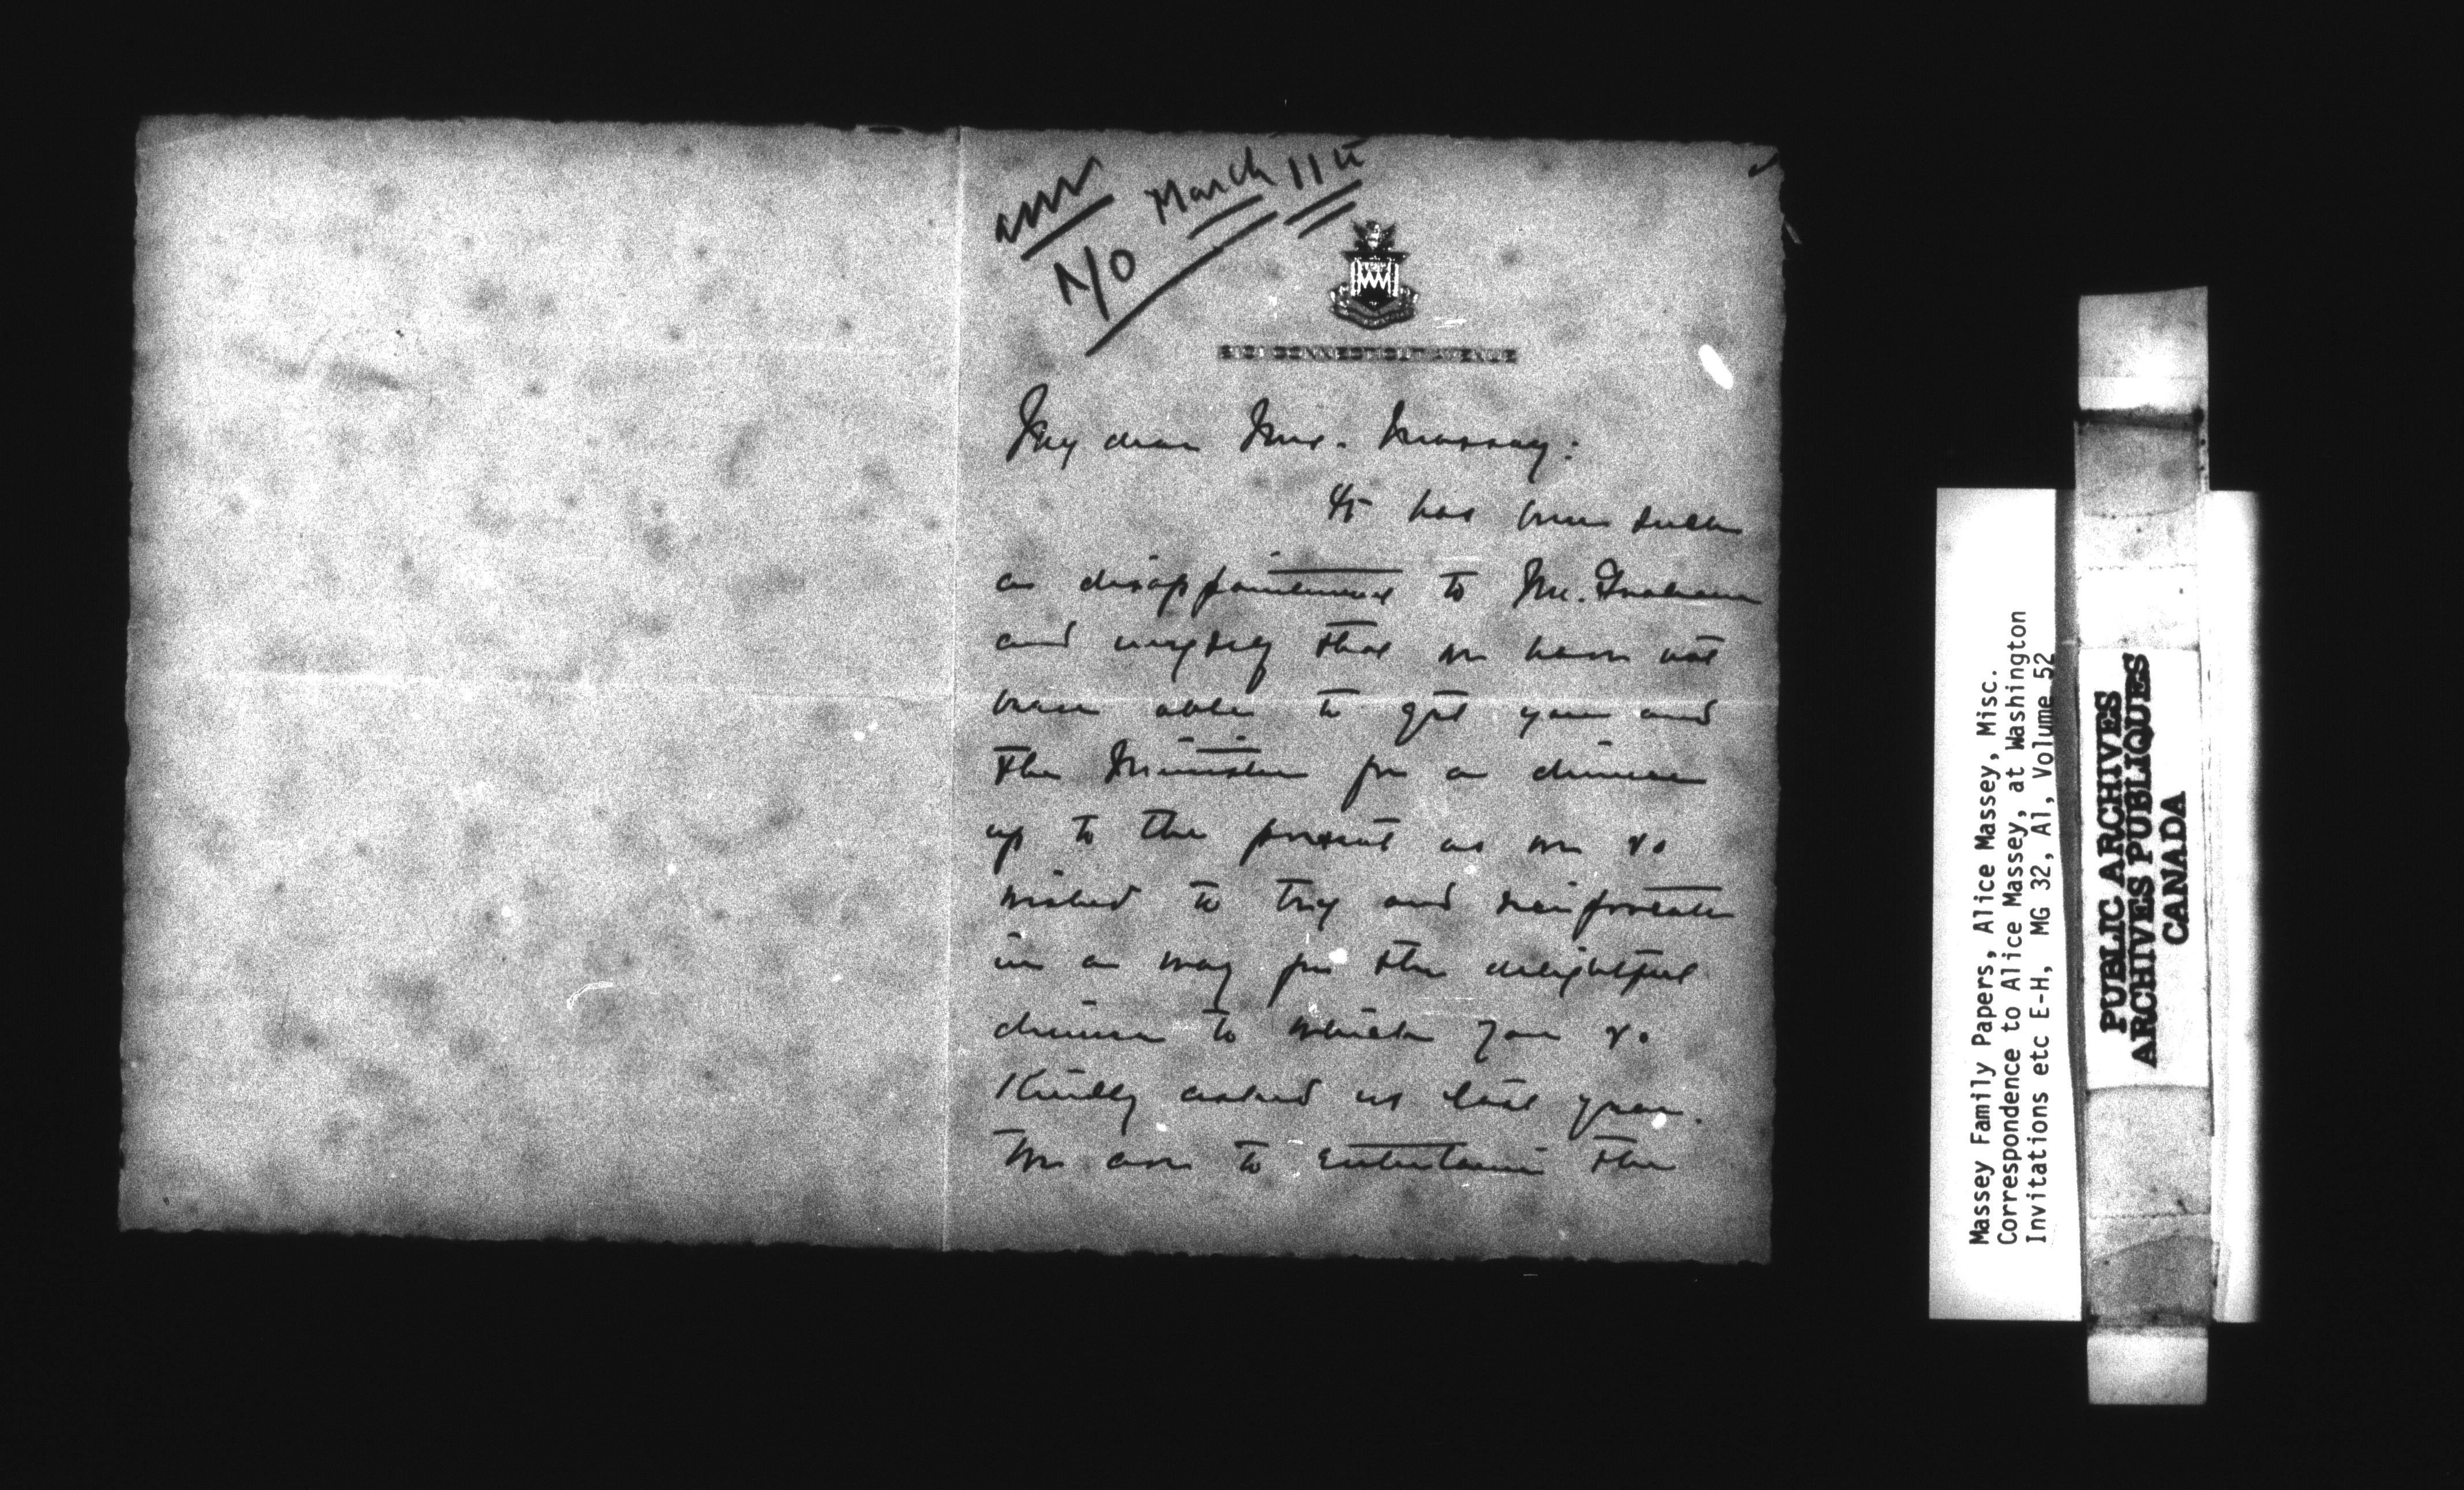 ans
March 11th
No
CONNECTICUT AVENUE
My dear Mrs. Massey:
It has been such
a disappointment to Mr. Graham
and myself that we have not
been able to get you and
the Minister for a dinner
up to the present as we so
wished to try and reciprocate
in a way for the delightful
dinner to which you so
kindly asked us last year.
We are to entertain the
Massey Family Papers, Alice Massey, Misc.
Correspondence to Alice Massey, at Washington
Invitations etc E-H, MG 32, A1, Volume 52
PUBLIC ARCHIVES
ARCHIVES PUBLIQUES
CANADA